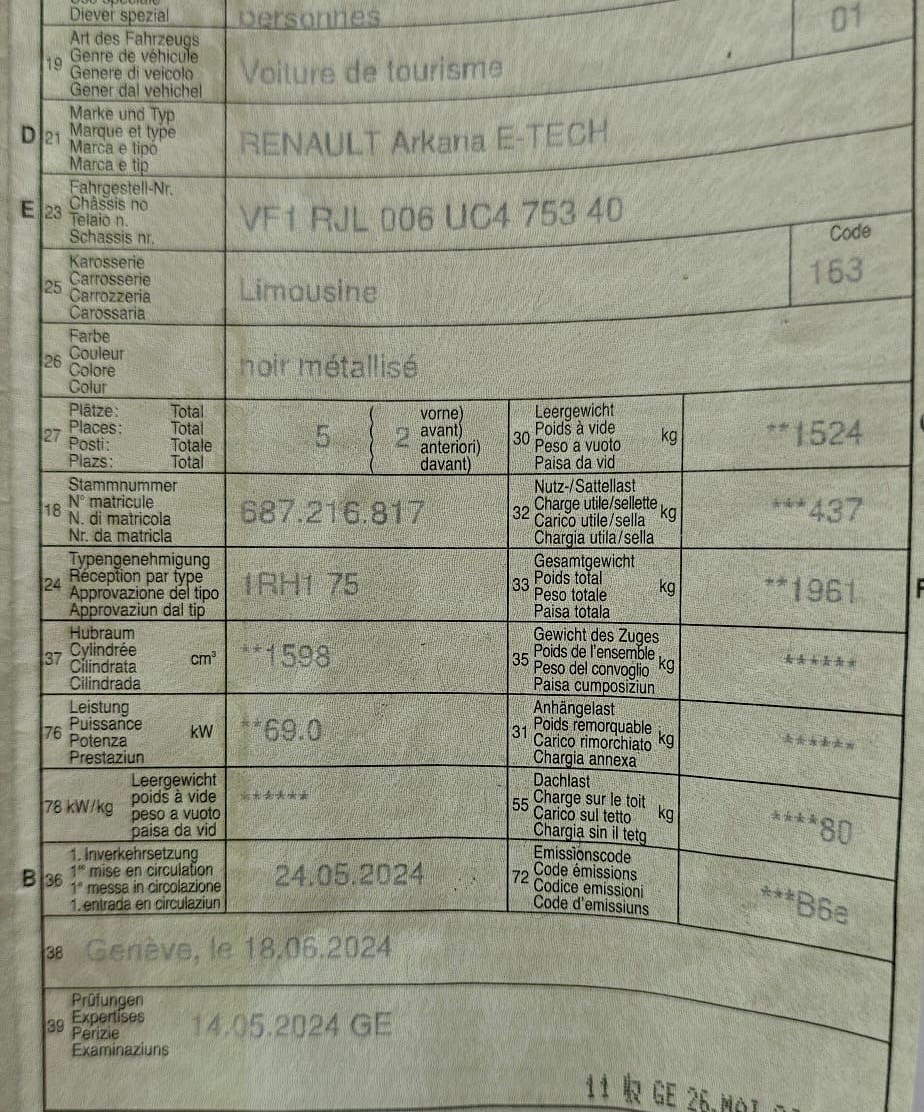 Diever spezial personnes 01
19 Art des Fahrzeugs
Genre de véhicule
Genere di veicolo
Gener dal vehichel
Voiture de tourisme
D 21 Marke und Typ
Marque et type
Marca e tipo
Marca e tip
RENAULT Arkana E-TECH
E 23 Fahrgestell-Nr.
Châssis no
Telaio n.
Schassis nr.
VF1 RJL 006 UC4 753 40
25 Karosserie
Carrosserie
Carrozzeria
Carossaria
Limousine
Code
163
26 Farbe
Couleur
Colore
Colur
noir métallisé
27 Plätze: Total
Places: Total
Posti: Totale
Plazs: Total
5 ( 2 vorne)
avant)
anteriori)
davant)
30 Leergewicht
Poids à vide kg
Peso a vuoto
Paisa da vid
**1524
18 Stammnummer
N° matricule
N. di matricola
Nr. da matricla
687.216.817
32 Nutz-/Sattellast
Charge utile/sellette kg
Carico utile/sella
Chargia utila/sella
***437
24 Typengenehmigung
Réception par type
Approvazione del tipo
Approvaziun dal tip
1RH1 75
33 Gesamtgewicht
Poids total kg
Peso totale
Paisa totala
**1961
37 Hubraum
Cylindrée cm³
Cilindrata
Cilindrada
**1598
35 Gewicht des Zuges
Poids de l'ensemble kg
Peso del convoglio
Paisa cumposiziun
******
76 Leistung
Puissance kW
Potenza
Prestaziun
**69.0
31 Anhängelast
Poids remorquable kg
Carico rimorchiato
Chargia annexa
******
78 kW/kg Leergewicht
poids à vide
peso a vuoto
paisa da vid
******
55 Dachlast
Charge sur le toit kg
Carico sul tetto
Chargia sin il tetg
****80
B 36 1. Inverkehrsetzung
1re mise en circulation
1a messa in circolazione
1. entrada en circulaziun
24.05.2024
72 Emissionscode
Code émissions
Codice emissioni
Code d'emissiuns
***B6e
38 Genève, le 18.06.2024
39 Prüfungen
Expertises
Perizie
Examinaziuns
14.05.2024 GE
11 GE 26. MAI